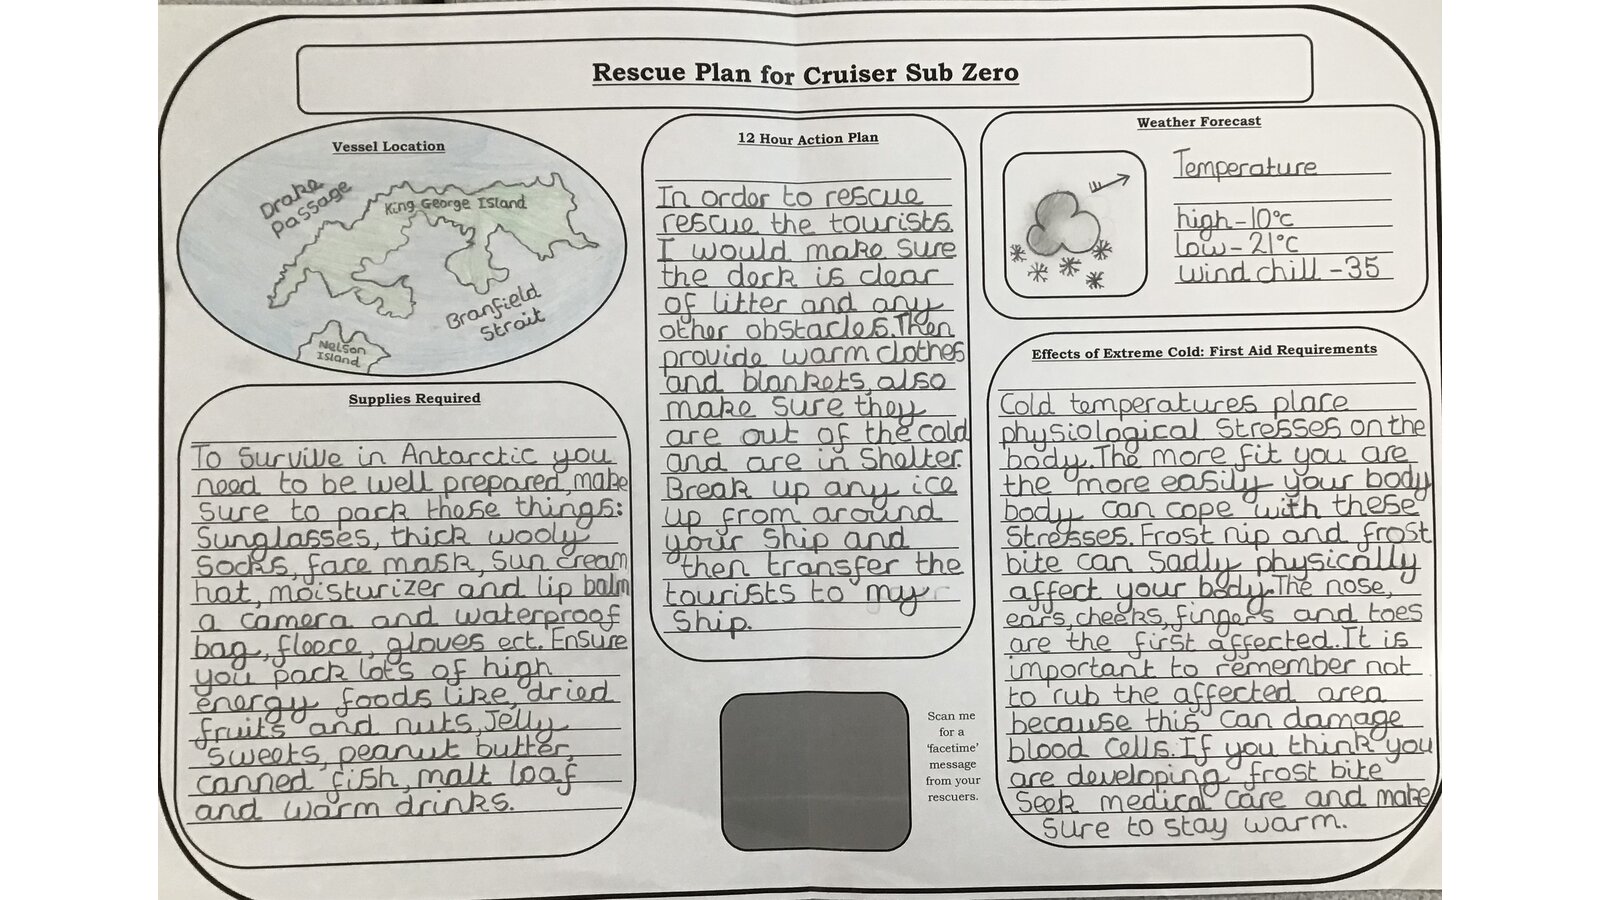 Rescue Plan for Cruiser Sub Zero
Vessel Location
Drake
Passage
King George Island
Branfield
Strait
Nelson
Island
Supplies Required
To Survive in Antarctic you
need to be well prepared, make
sure to pack these things:
Sunglasses, thick wooly
Socks, face mask, Sun cream
hat, moisturizer and lip balm
a camera and waterproof
bag, fleece, gloves ect. Ensure
you pack lots of high
energy foods like, dried
fruits and nuts, Jelly
sweets, peanut butter,
canned fish, malt loaf
and warm drinks.
12 Hour Action Plan
In order to rescue
rescue the tourists.
I would make sure
the deck is clear
of litter and any
other obstacles. Then
provide warm clothes
and blankets, also
make sure they
are out of the cold
and are in Shelter.
Break up any ice
up from around
your Ship and
then transfer the
tourists to my
Ship.
Scan me
for a
'facetime'
message
from your
rescuers.
Weather Forecast
Temperature
high -10°c
low - 21°c
wind chill -35
Effects of Extreme Cold: First Aid Requirements
Cold temperatures place
physiological Stresses on the
body. The more fit you are
the more easily your body
body can cope with these
Stresses. Frost nip and frost
bite can Sadly physically
affect your body. The nose,
ears, cheeks, fingers and toes
are the first affected. It is
important to remember not
to rub the affected area
because this can damage
blood cells. If you think you
are developing frost bite
Seek medical care and make
Sure to stay warm.